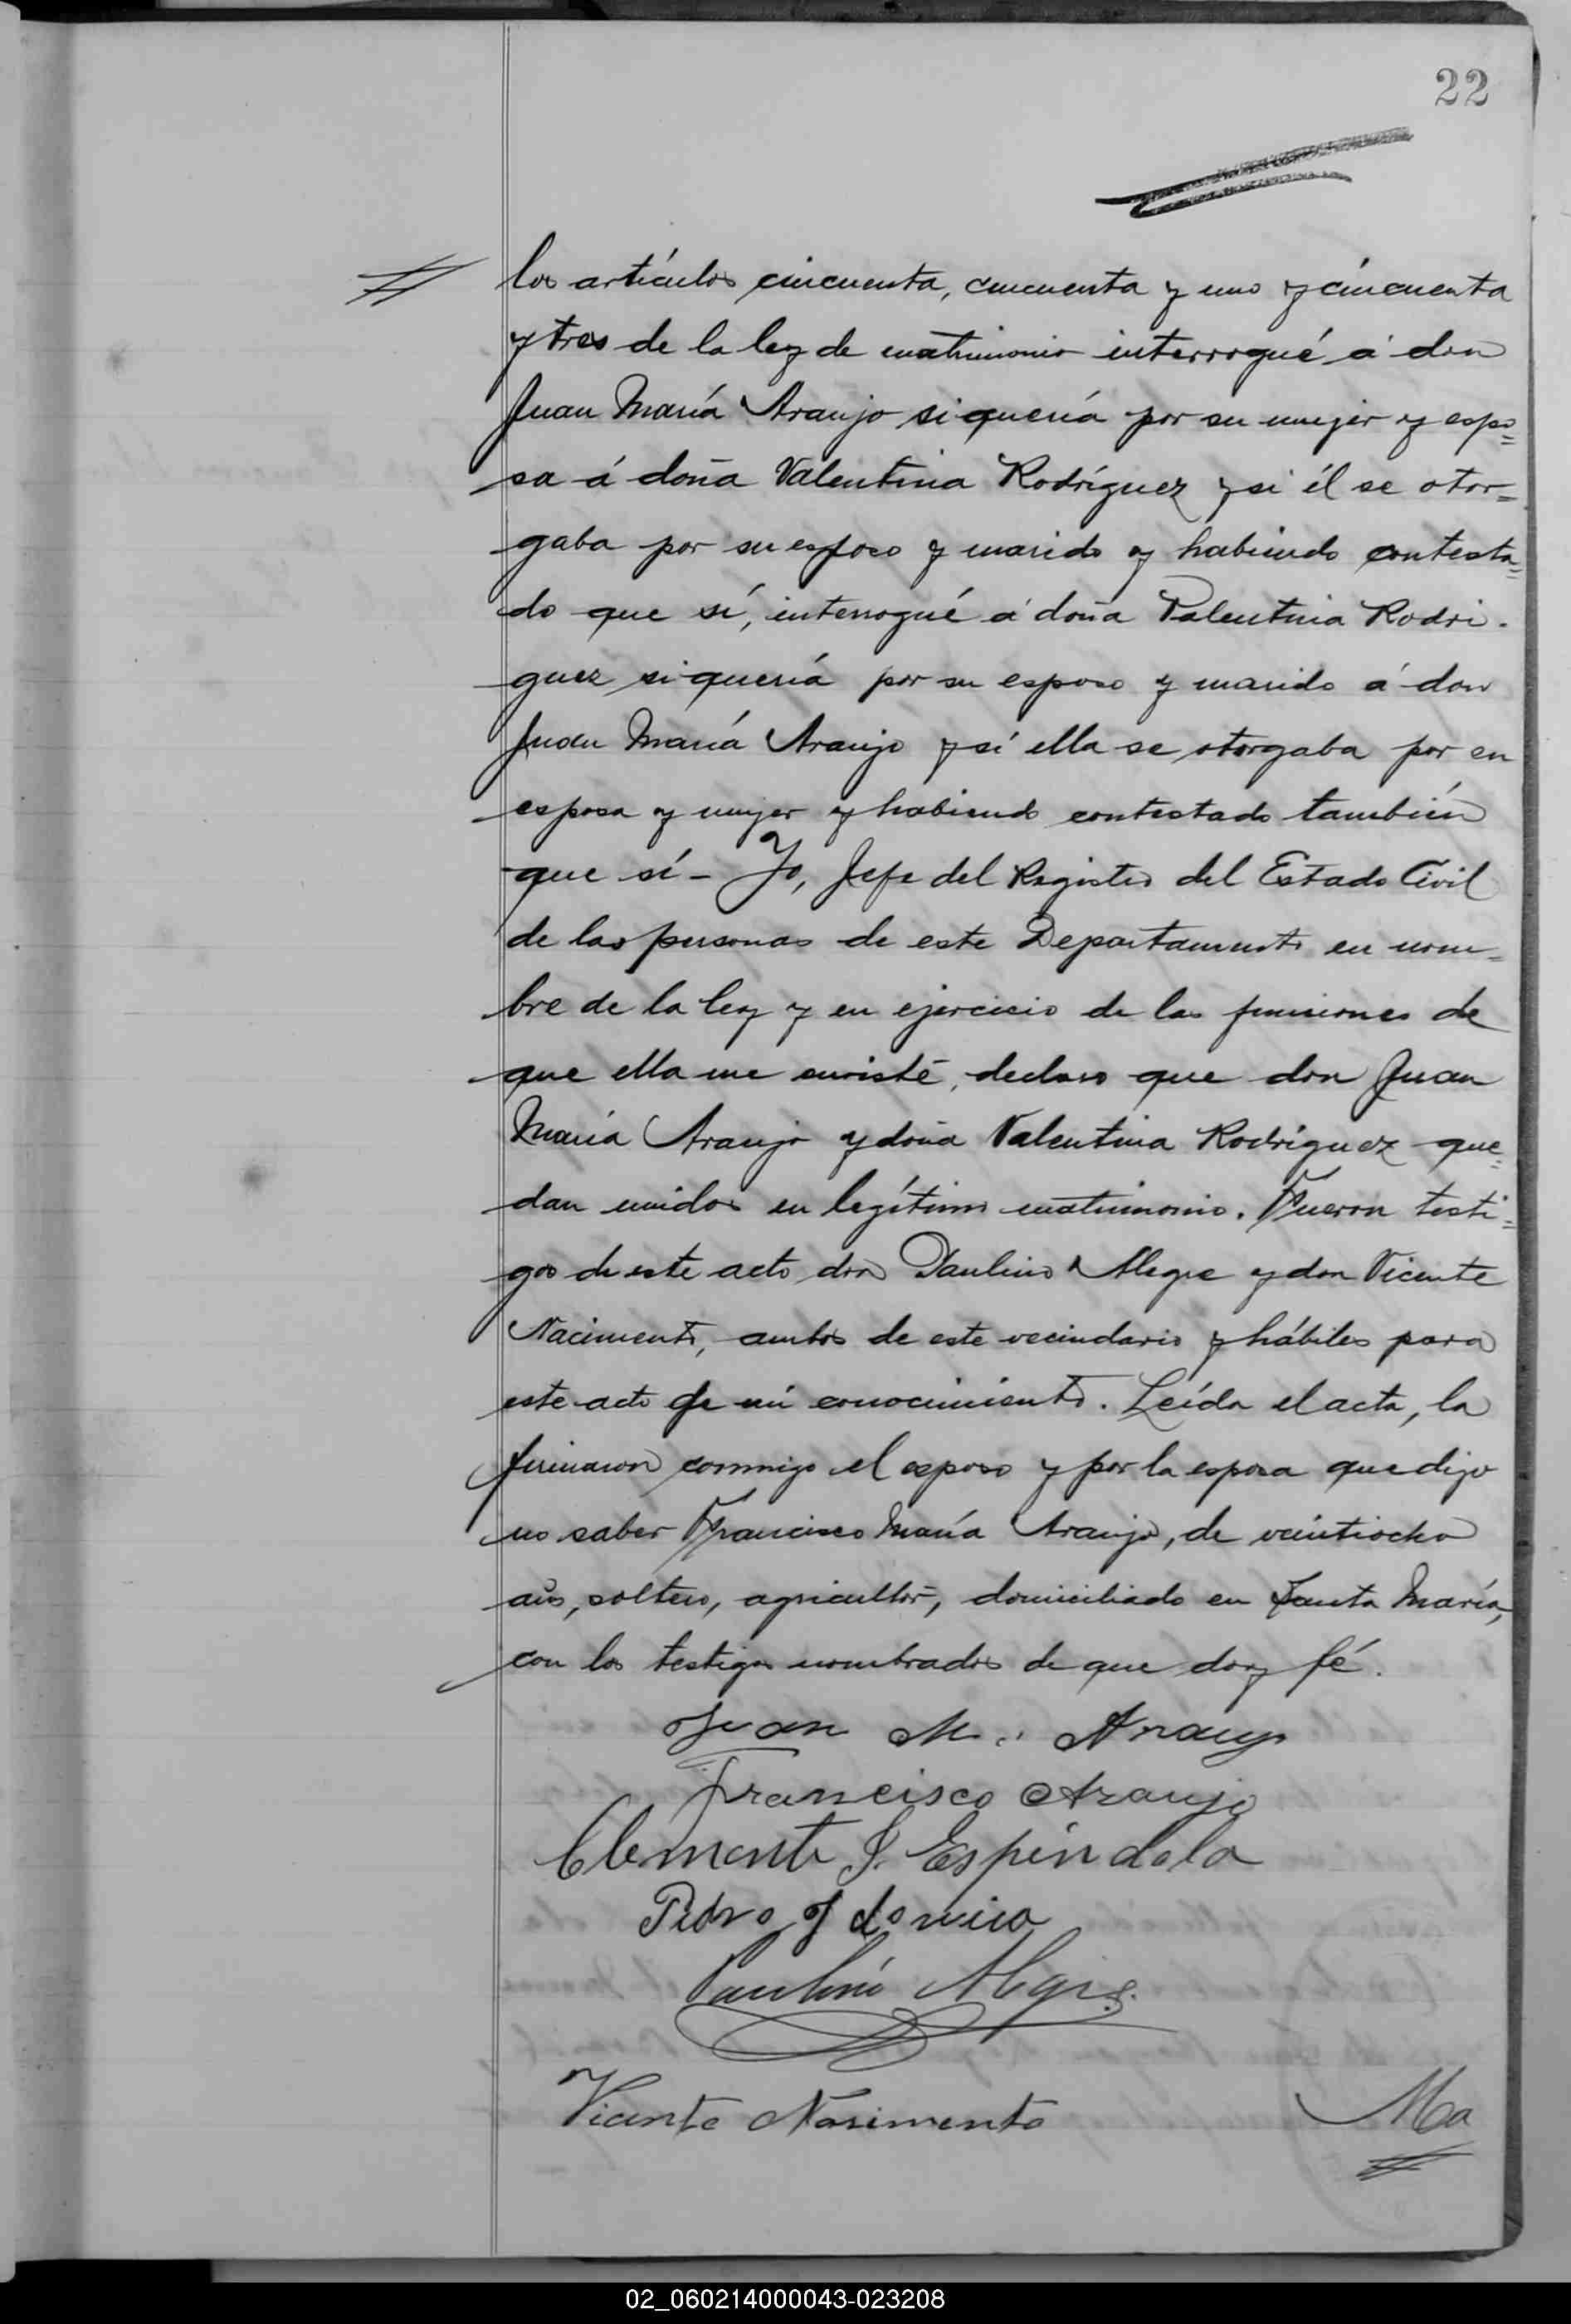 22
los artículos cincuenta, cincuenta y uno y cincuenta
y tres de la ley de matrimonio interrogué á don
Juan María Araujo si quería por su mujer y espo=
sa á doña Valentina Rodríguez y si él se otor=
gaba por su esposo y marido y habiendo contesta=
do que sí, interrogué á doña Valentina Rodri-
guez si quería por su esposo y marido á don
Juan María Araujo y si ella se otorgaba por su
esposa y mujer y habiendo contestado también
que sí - Yo, Jefe del Registro del Estado Civil
de las personas de este Departamento en nom=
bre de la ley y en ejercicio de las funciones de
que ella me inviste, declaro que don Juan
María Araujo y doña Valentina Rodríguez que=
dan unidos en legítimo matrimonio. Fueron testi=
gos de este acto don Paulino Alegre y don Vicente
Nacimento, ambos de este vecindario y hábiles para
este acto de mi conocimiento. Leída el acta, la
firmaron conmigo el esposo y por la esposa que dijo
no saber Francisco María Araujo, de veintiocho
años, soltero, agricultor, domiciliado en Santa María,
con los testigos nombrados de que doy fé.
Juan M. Araujo
Francisco Araujo
Clemente S. Espindola
Pedro
Paulino Alegre
Vicente Nasimento
Ma
02_060214000043-023208